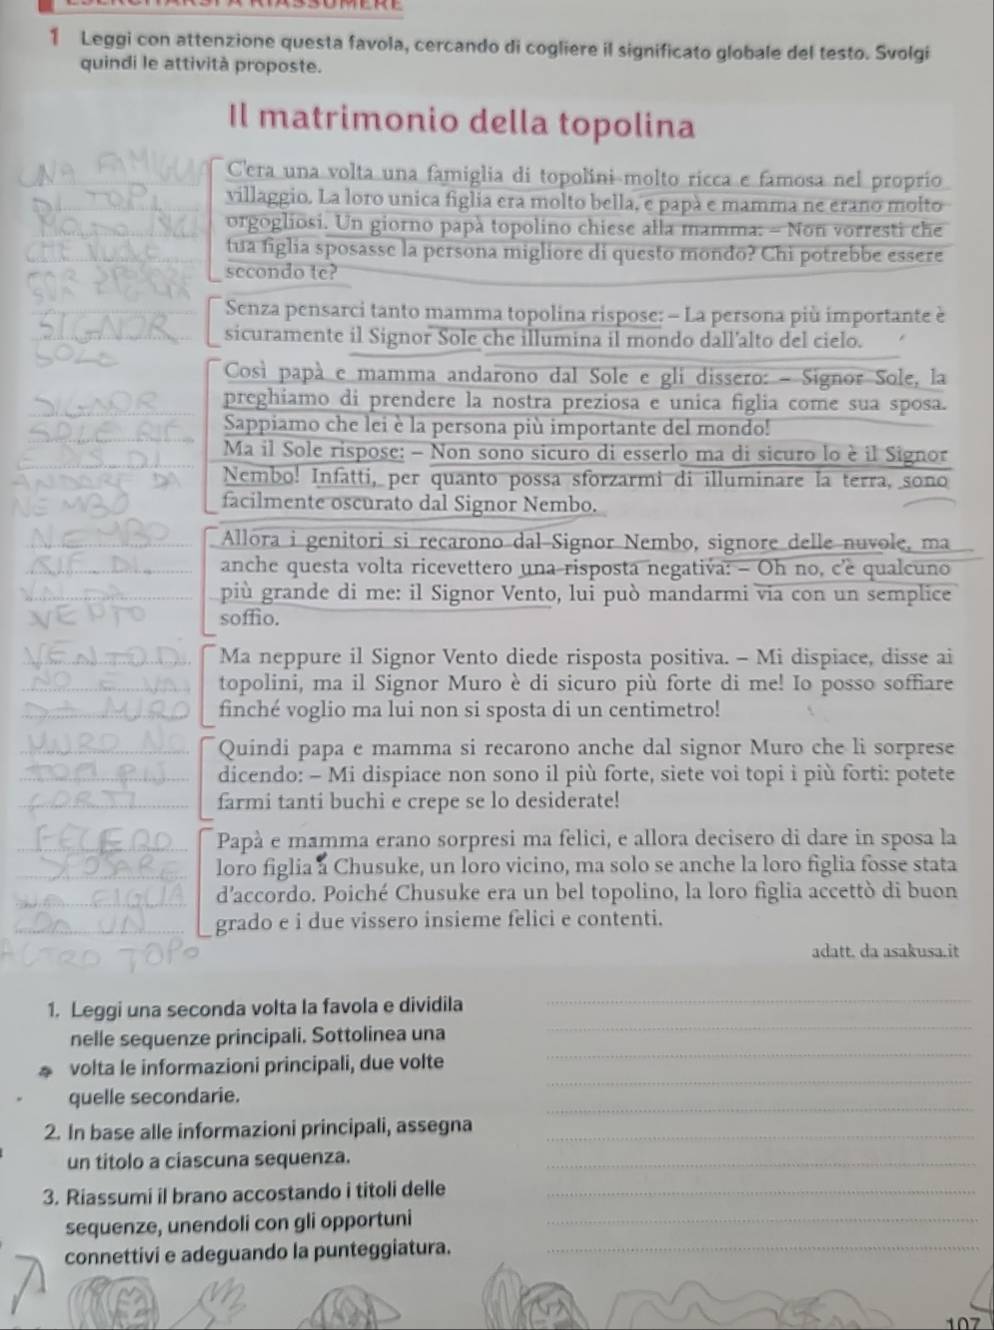 1 Leggi con attenzione questa favola, cercando di cogliere il significato globale del testo. Svolgi
quindi le attività proposte.
Il matrimonio della topolina
C'era una volta una famiglia di topolini molto ricca e famosa nel proprio
villaggio. La loro unica figlia era molto bella, e papà e mamma ne erano molto
orgogliosi. Un giorno papà topolino chiese alla mamma: – Non vorresti che
tua figlia sposasse la persona migliore di questo mondo? Chi potrebbe essere
secondo te?
UNA FAMIGLIA
DI TOPI
CHE VUOLE
Senza pensarci tanto mamma topolina rispose: – La persona più importante è
sicuramente il Signor Sole che illumina il mondo dall'alto del cielo.
SIGNOR
SOLE
Così papà e mamma andarono dal Sole e gli dissero: – Signor Sole, la
preghiamo di prendere la nostra preziosa e unica figlia come sua sposa.
Sappiamo che lei è la persona più importante del mondo!
Ma il Sole rispose: – Non sono sicuro di esserlo ma di sicuro lo è il Signor
Nembo! Infatti, per quanto possa sforzarmi di illuminare la terra, sono
facilmente oscurato dal Signor Nembo.
SIGNOR
SOLE RIF
DI
ANDARE DA
NEMBO
Allora i genitori si recarono dal Signor Nembo, signore delle nuvole, ma
anche questa volta ricevettero una risposta negativa: – Oh no, c'è qualcuno
più grande di me: il Signor Vento, lui può mandarmi via con un semplice
soffio.
NEMBO
RIF. DI
VN DA
VENTO
Ma neppure il Signor Vento diede risposta positiva. – Mi dispiace, disse ai
topolini, ma il Signor Muro è di sicuro più forte di me! Io posso soffiare
finché voglio ma lui non si sposta di un centimetro!
VENTO DI
NO E VAI
DA MURO
Quindi papa e mamma si recarono anche dal signor Muro che li sorprese
dicendo: – Mi dispiace non sono il più forte, siete voi topi i più forti: potete
farmi tanti buchi e crepe se lo desiderate!
MURO NO
TOPI PIÙ
FORTI
Papà e mamma erano sorpresi ma felici, e allora decisero di dare in sposa la
loro figlia a Chusuke, un loro vicino, ma solo se anche la loro figlia fosse stata
d'accordo. Poiché Chusuke era un bel topolino, la loro figlia accettò di buon
grado e i due vissero insieme felici e contenti.
FECERO
SPOSARE
LA FIGLIA
CON UN
ALTRO TOPO
adatt. da asakusa.it
1. Leggi una seconda volta la favola e dividila
nelle sequenze principali. Sottolinea una
volta le informazioni principali, due volte
quelle secondarie.
2. In base alle informazioni principali, assegna
un titolo a ciascuna sequenza.
3. Riassumi il brano accostando i titoli delle
sequenze, unendoli con gli opportuni
connettivi e adeguando la punteggiatura.
107